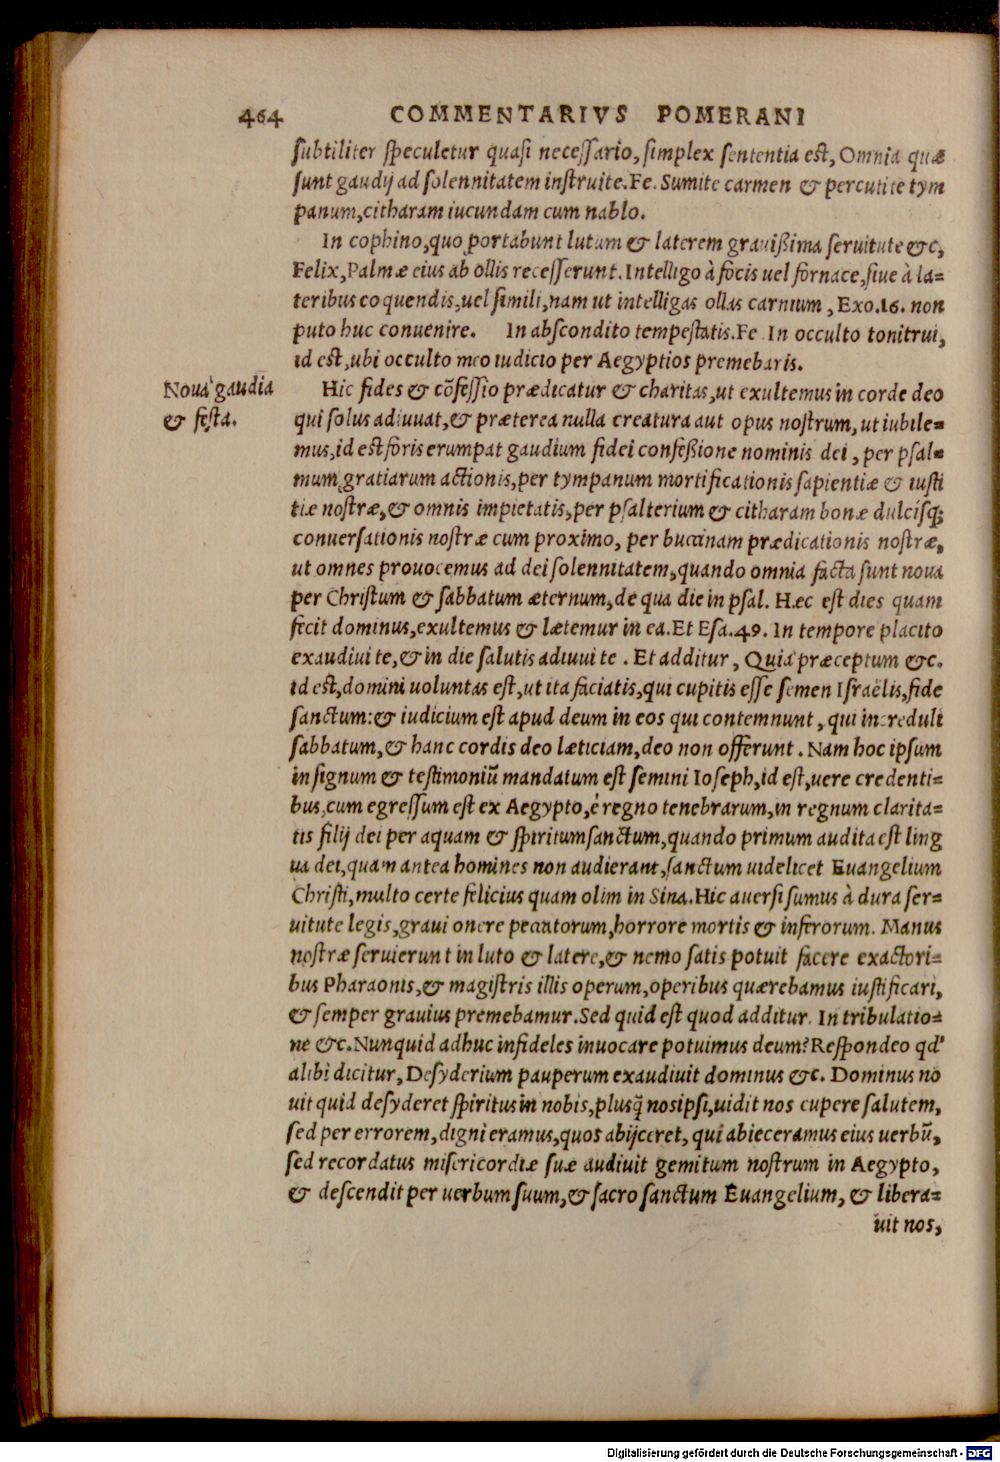 464 COMMENTARIVS POMERANI
ſubtiliter ſpeculetur quaſi neceſſario, ſimplex ſententia eſt, Omnia quæ
ſunt gaudij ad ſolennitatem inſtruite. Fe. Sumite carmen & percutite tym
panum, citharam iucundam cum nablo.
In cophino, quo portabunt lutum & laterem grauißima ſeruitute &c,
Felix, Palmæ eius ab ollis receſſerunt. Intelligo à focis uel fornace, ſiue à la=
teribus coquendis, uel ſimili, nam ut intelligas ollas carnium, Exo.16. non
puto huc conuenire. In abſcondito tempeſtatis. Fe. In occulto tonitrui,
id eſt, ubi occulto meo iudicio per Aegyptios premebaris.
Noua gaudia
& feſta.
Hic fides & cõfeſſio prædicatur & charitas, ut exultemus in corde deo
qui ſolus adiuuat, & præterea nulla creatura aut opus noſtrum, ut iubile=
mus, id eſt foris erumpat gaudium fidei confeßione nominis dei, per pſal=
mum gratiarum actionis, per tympanum mortificationis ſapientiæ & iuſti
tiæ noſtræ, & omnis impietatis, per pſalterium & citharam bonæ dulciſq;
conuerſationis noſtræ cum proximo, per buccinam prædicationis noſtræ,
ut omnes prouocemus ad dei ſolennitatem, quando omnia facta ſunt noua
per Chriſtum & ſabbatum æternum, de qua die in pſal. Hæc eſt dies quam
fecit dominus, exultemus & lætemur in ea. Et Eſa.49. In tempore placito
exaudiui te, & in die ſalutis adiuui te. Et additur, Quia præceptum &c.
id eſt, domini uoluntas eſt, ut ita faciatis, qui cupitis eſſe ſemen Iſraëlis, fide
ſanctum: & iudicium eſt apud deum in eos qui contemnunt, qui increduli
ſabbatum, & hanc cordis deo læticiam, deo non offerunt. Nam hoc ipſum
in ſignum & teſtimoniũ mandatum eſt ſemini Ioſeph, id eſt, uere credenti=
bus, cum egreſſum eſt ex Aegypto, è regno tenebrarum, in regnum clarita=
tis filij dei per aquam & ſpiritumſanctum, quando primum audita eſt ling
ua dei, quam antea homines non audierant, ſanctum uidelicet Euangelium
Chriſti, multo certe felicius quam olim in Sina. Hic auerſi ſumus à dura ſer=
uitute legis, graui onere peccatorum, horrore mortis & inferorum. Manus
noſtræ ſeruierunt in luto & latere, & nemo ſatis potuit facere exactori=
bus Pharaonis, & magiſtris illis operum, operibus quærebamus iuſtificari,
& ſemper grauius premebamur. Sed quid eſt quod additur. In tribulatio=
ne &c. Nunquid adhuc infideles inuocare potuimus deum? Reſpondeo qd'
alibi dicitur, Deſyderium pauperum exaudiuit dominus &c. Dominus no
uit quid deſyderet ſpiritus in nobis, plusq̃ nosipſi, uidit nos cupere ſalutem,
ſed per errorem, digni eramus, quos abijceret, qui abieceramus eius uerbũ,
ſed recordatus miſericordiæ ſuæ audiuit gemitum noſtrum in Aegypto,
& deſcendit per uerbum ſuum, & ſacro ſanctum Euangelium, & libera=
uit nos,
Digitalisierung gefördert durch die Deutsche Forschungsgemeinschaft - DFG